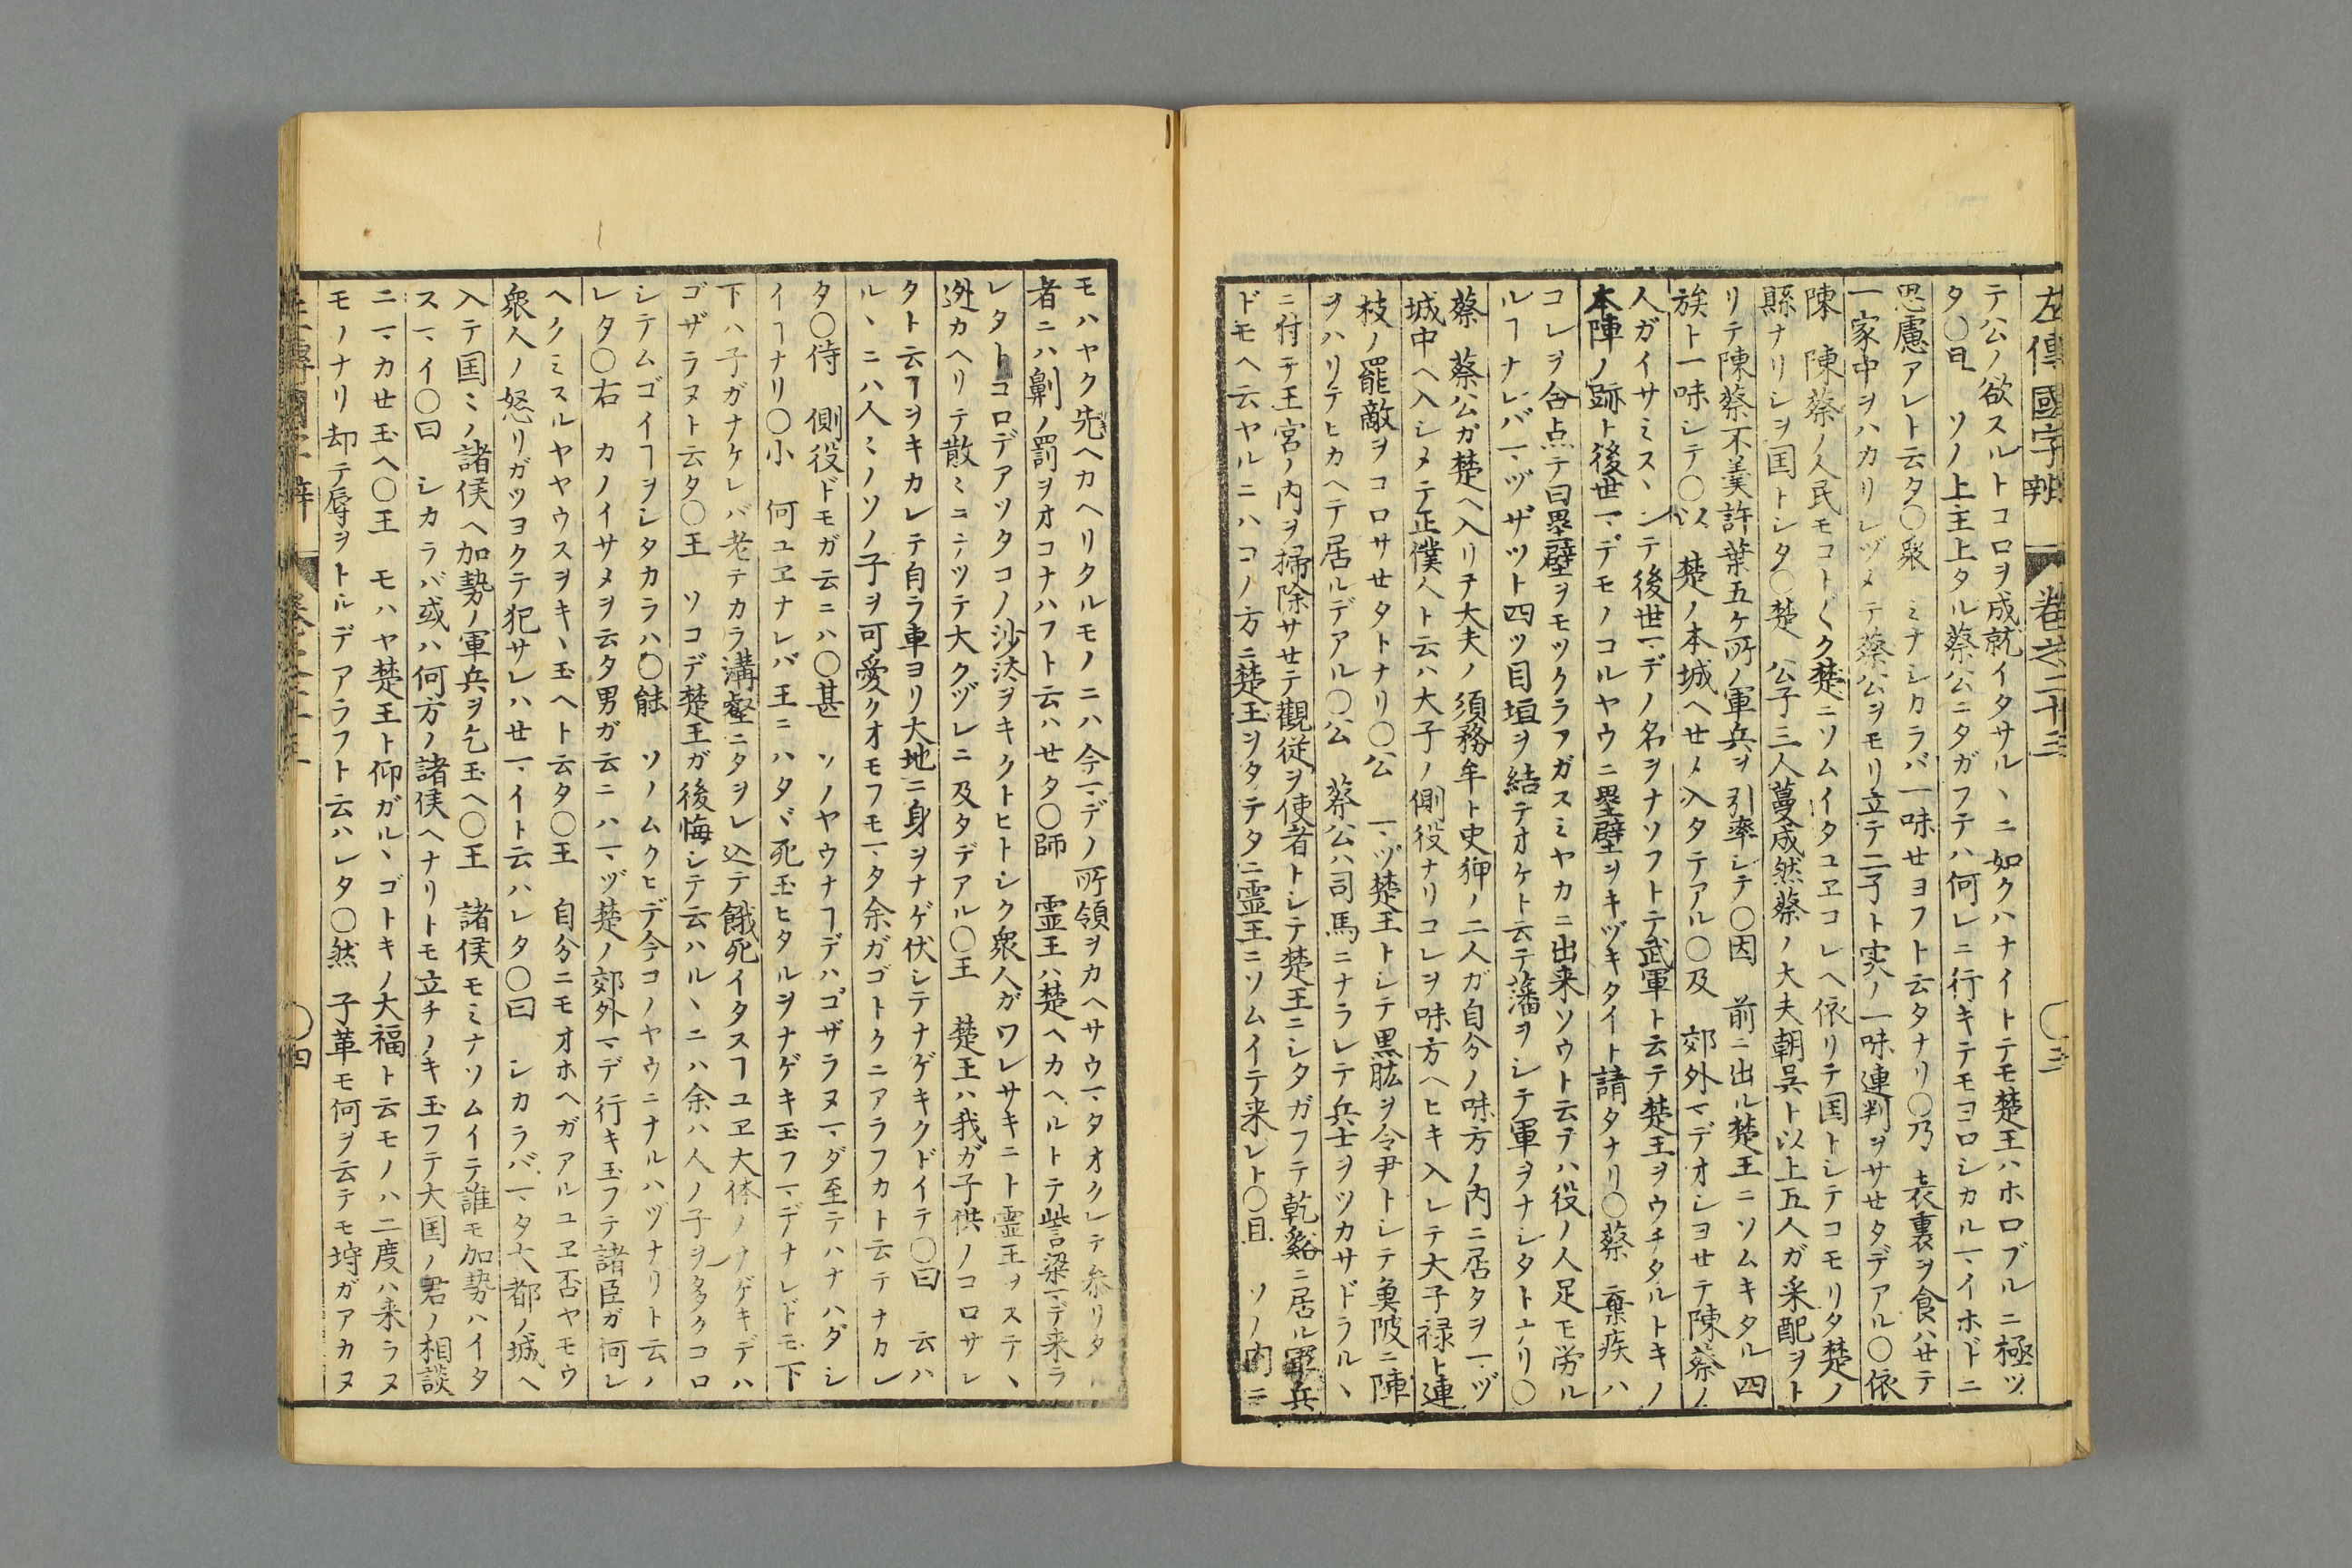 左傳國字辨　卷之二十三　〇三
テ公ノ欲スルトコロヲ成就イタサル丶ニ如クハナイトテモ楚王ハホロブルニ極ツ
タ〇曰　ソノ上主上タル蔡公ニタガフテハ何レニ行キテモヨロシカルマイホドニ
思慮アレト云タ〇衆　ミナシカラバ一味セヨフト云タナリ〇乃　表裏ヲ食ハセテ
一家中ヲハカリシヅメテ蔡公ヲモリ立テ二子ト実ノ一味連判ヲサセタデアル〇依
陳　陳蔡ノ人民モコト〲ク楚ニソムイタユヱコレヘ依リテ国トシテコモリタ楚ノ
縣ナリシヲ国トシタ〇楚　公子三人蔓成然蔡ノ大夫朝呉ト以上五人ガ采配ヲト
リテ陳蔡不羹許葉五ケ所ノ軍兵ヲ引率シテ〇因　前ニ出ル楚王ニソムキタル四
族ト一味シテ〇以　楚ノ本城ヘセメ入タテアル〇及　郊外マデオシヨセテ陳蔡ノ
人ガイサミス丶ンテ後世マデノ名ヲナソフトテ武軍ト云テ楚王ヲウチタルトキノ
本陣ノ跡ト後世マデモノコルヤウニ壘壁ヲキヅキタイト請タナリ〇蔡　棄疾ハ
コレヲ合点テ曰壘壁ヲモツクラフガスミヤカニ出来ソウト云テハ役ノ人足モ労ル
ルヿナレバマヅザツト四ツ目垣ヲ結テオケト云テ藩ヲシテ軍ヲナシタトナリ〇
蔡　蔡公ガ楚ヘ入リテ大夫ノ須務牟ト史猈ノ二人ガ自分ノ味方ノ内ニ居タヲマヅ
城中ヘ入シメテ正僕人ト云ハ大子ノ側役ナリコレヲ味方ヘヒキ入レテ大子禄ト連
枝ノ罷敵ヲコロサセタトナリ〇公　マヅ楚王トシテ黒肱ヲ令尹トシテ魚陂ニ陣
ヲハリテヒカヘテ居ルデアル〇公　蔡公ハ司馬ニナラレテ兵士ヲツカサドラル丶
ニ付テ王宮ノ内ヲ掃除サセテ觀従ヲ使者トシテ楚王ニシタガフテ乾谿ニ居ル軍兵
ドモヘ云ヤルニハコノ方ニ楚王ヲタテタニ霊王ニソムイテ来レト〇且　ソノ内ニ
モハヤク先ヘカヘリタルモノニハ今マデノ所領ヲカヘサウマタオクレテ参リタル
者ニハ劓ノ罰ヲオコナハフト云ハセタ〇師　霊王ハ楚ヘカヘルトテ訾梁マデ来ラ
レタトコロデアツタコノ沙汰ヲキクトヒトシク衆人ガワレサキニト霊王ヲステ丶
迯カヘリテ散ミニナツテ大クヅレニ及タデアル〇王　楚王ハ我ガ子供ノコロサレ
タト云ヿヲキカレテ自ラ車ヨリ大地ニ身ヲナゲ伏シテナゲキクドイテ〇曰　云ハ
ル丶ニハ人ミノソノ子ヲ可愛クオモフモマタ余ガゴトクニアラフカト云テナカレ
タ〇侍　側役ドモガ云ニハ〇甚　ソノヤウナヿデハゴザラヌマダ至テハナハダシ
イヿナリ〇小　何ユヱナレバ王ニハタヾ死玉ヒタルヲナゲキ玉フマデナレドモ下
下ハ子ガナケレバ老テカラ溝壑ニタヲレ込テ餓死イタスヿユヱ大体ノナゲキデハ
ゴザラヌト云タ〇王　ソコデ楚王ガ後悔シテ云ハル丶ニハ余ハ人ノ子ヲ多クコロ
シテムゴイヿヲシタカラハ〇能　ソノムクヒデ今コノヤウニナルハヅナリト云ノ
レタ〇右　カノイサメヲ云タ男ガ云ニハマヅ楚ノ郊外マデ行キ玉フテ諸臣ガ何レ
ヘクミスルヤヤウスヲキ丶玉ヘト云タ〇王　自分ニモオホヘガアルユヱ否ヤモウ
衆人ノ怒リガツヨクテ犯サレハセマイト云ハレタ〇曰　シカラバマタ大都ノ城ヘ
入テ国ミノ諸侯ヘ加勢ノ軍兵ヲ乞玉ヘ〇王　諸侯モミナソムイテ誰モ加勢ハイタ
スマイ〇曰　シカラバ或ハ何方ノ諸侯ヘナリトモ立チノキ玉フテ大国ノ君ノ相談
ニマカセ玉ヘ〇王　モハヤ楚王ト仰ガル丶ゴトキノ大福ト云モノハ二度ハ来ラヌ
モノナリ却テ辱ヲトルデアラフト云ハレタ〇然　子革モ何ヲ云テモ埒ガアカヌ
〇四